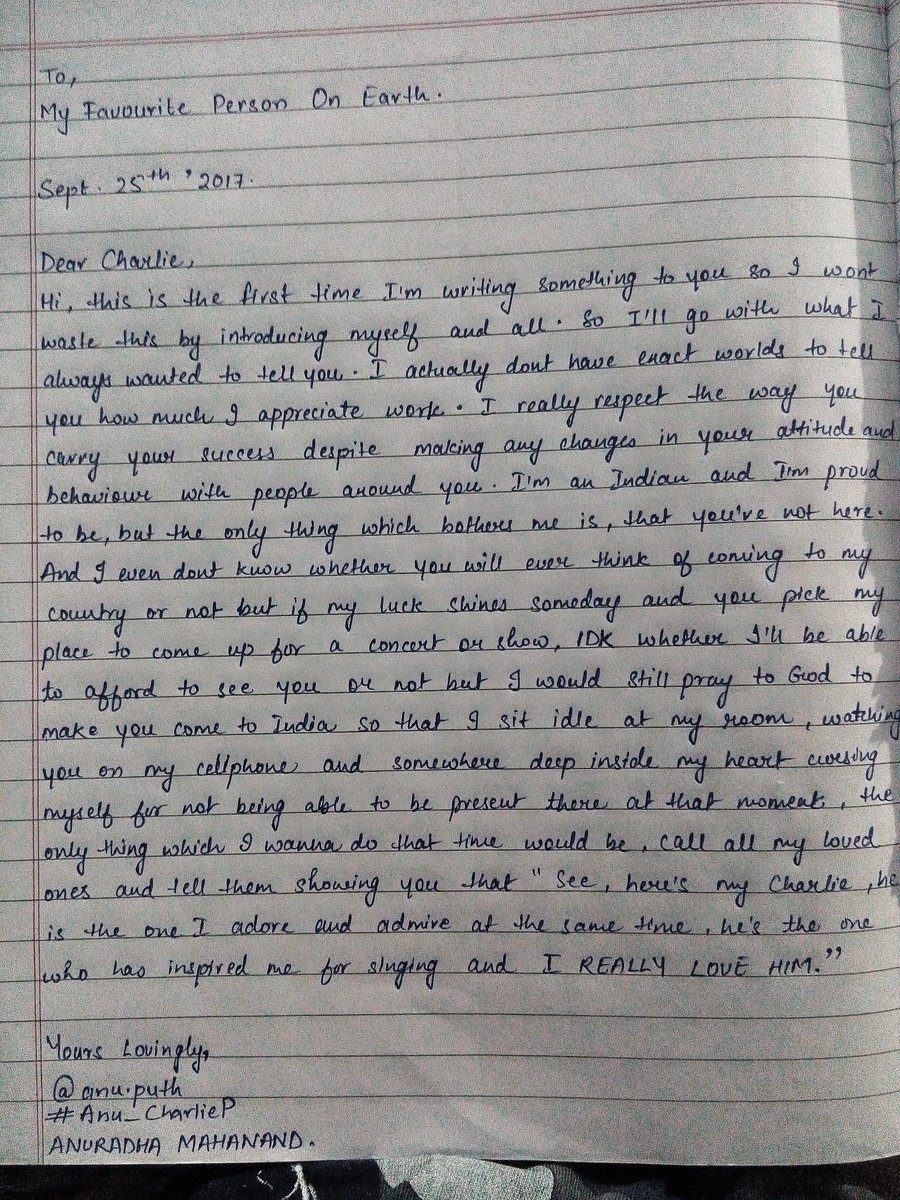 To,
My Favourite Person On Earth.
Sept. 25th, 2017.
Dear Charlie,
Hi, this is the first time I'm writing something to you so I wont
waste this by introducing myself and all. So I'll go with what I
always wanted to tell you. I actually dont have exact worlds to tell
you how much I appreciate work. I really respect the way you
carry your success despite making any changes in your attitude and
behaviour with people around you. I'm an Indian and I'm proud
to be, but the only thing which bothers me is, that you've not here.
And I even dont know whether you will ever think of coming to my
country or not but if my luck shines someday and you pick my
place to come up for a concert or show, IDK whether I'll be able
to afford to see you or not but I would still pray to God to
make you come to India so that I sit idle at my room, watching
you on my cellphone and somewhere deep inside my heart cursing
myself for not being able to be present there at that moment, the
only thing which I wanna do that time would be, call all my loved
ones and tell them showing you that "See, here's my Charlie, he
is the one I adore and admire at the same time, he's the one
who has inspired me for singing and I REALLY LOVE HIM."
Yours Lovingly,
@anu.puth
#Anu_CharlieP
ANURADHA MAHANAND.